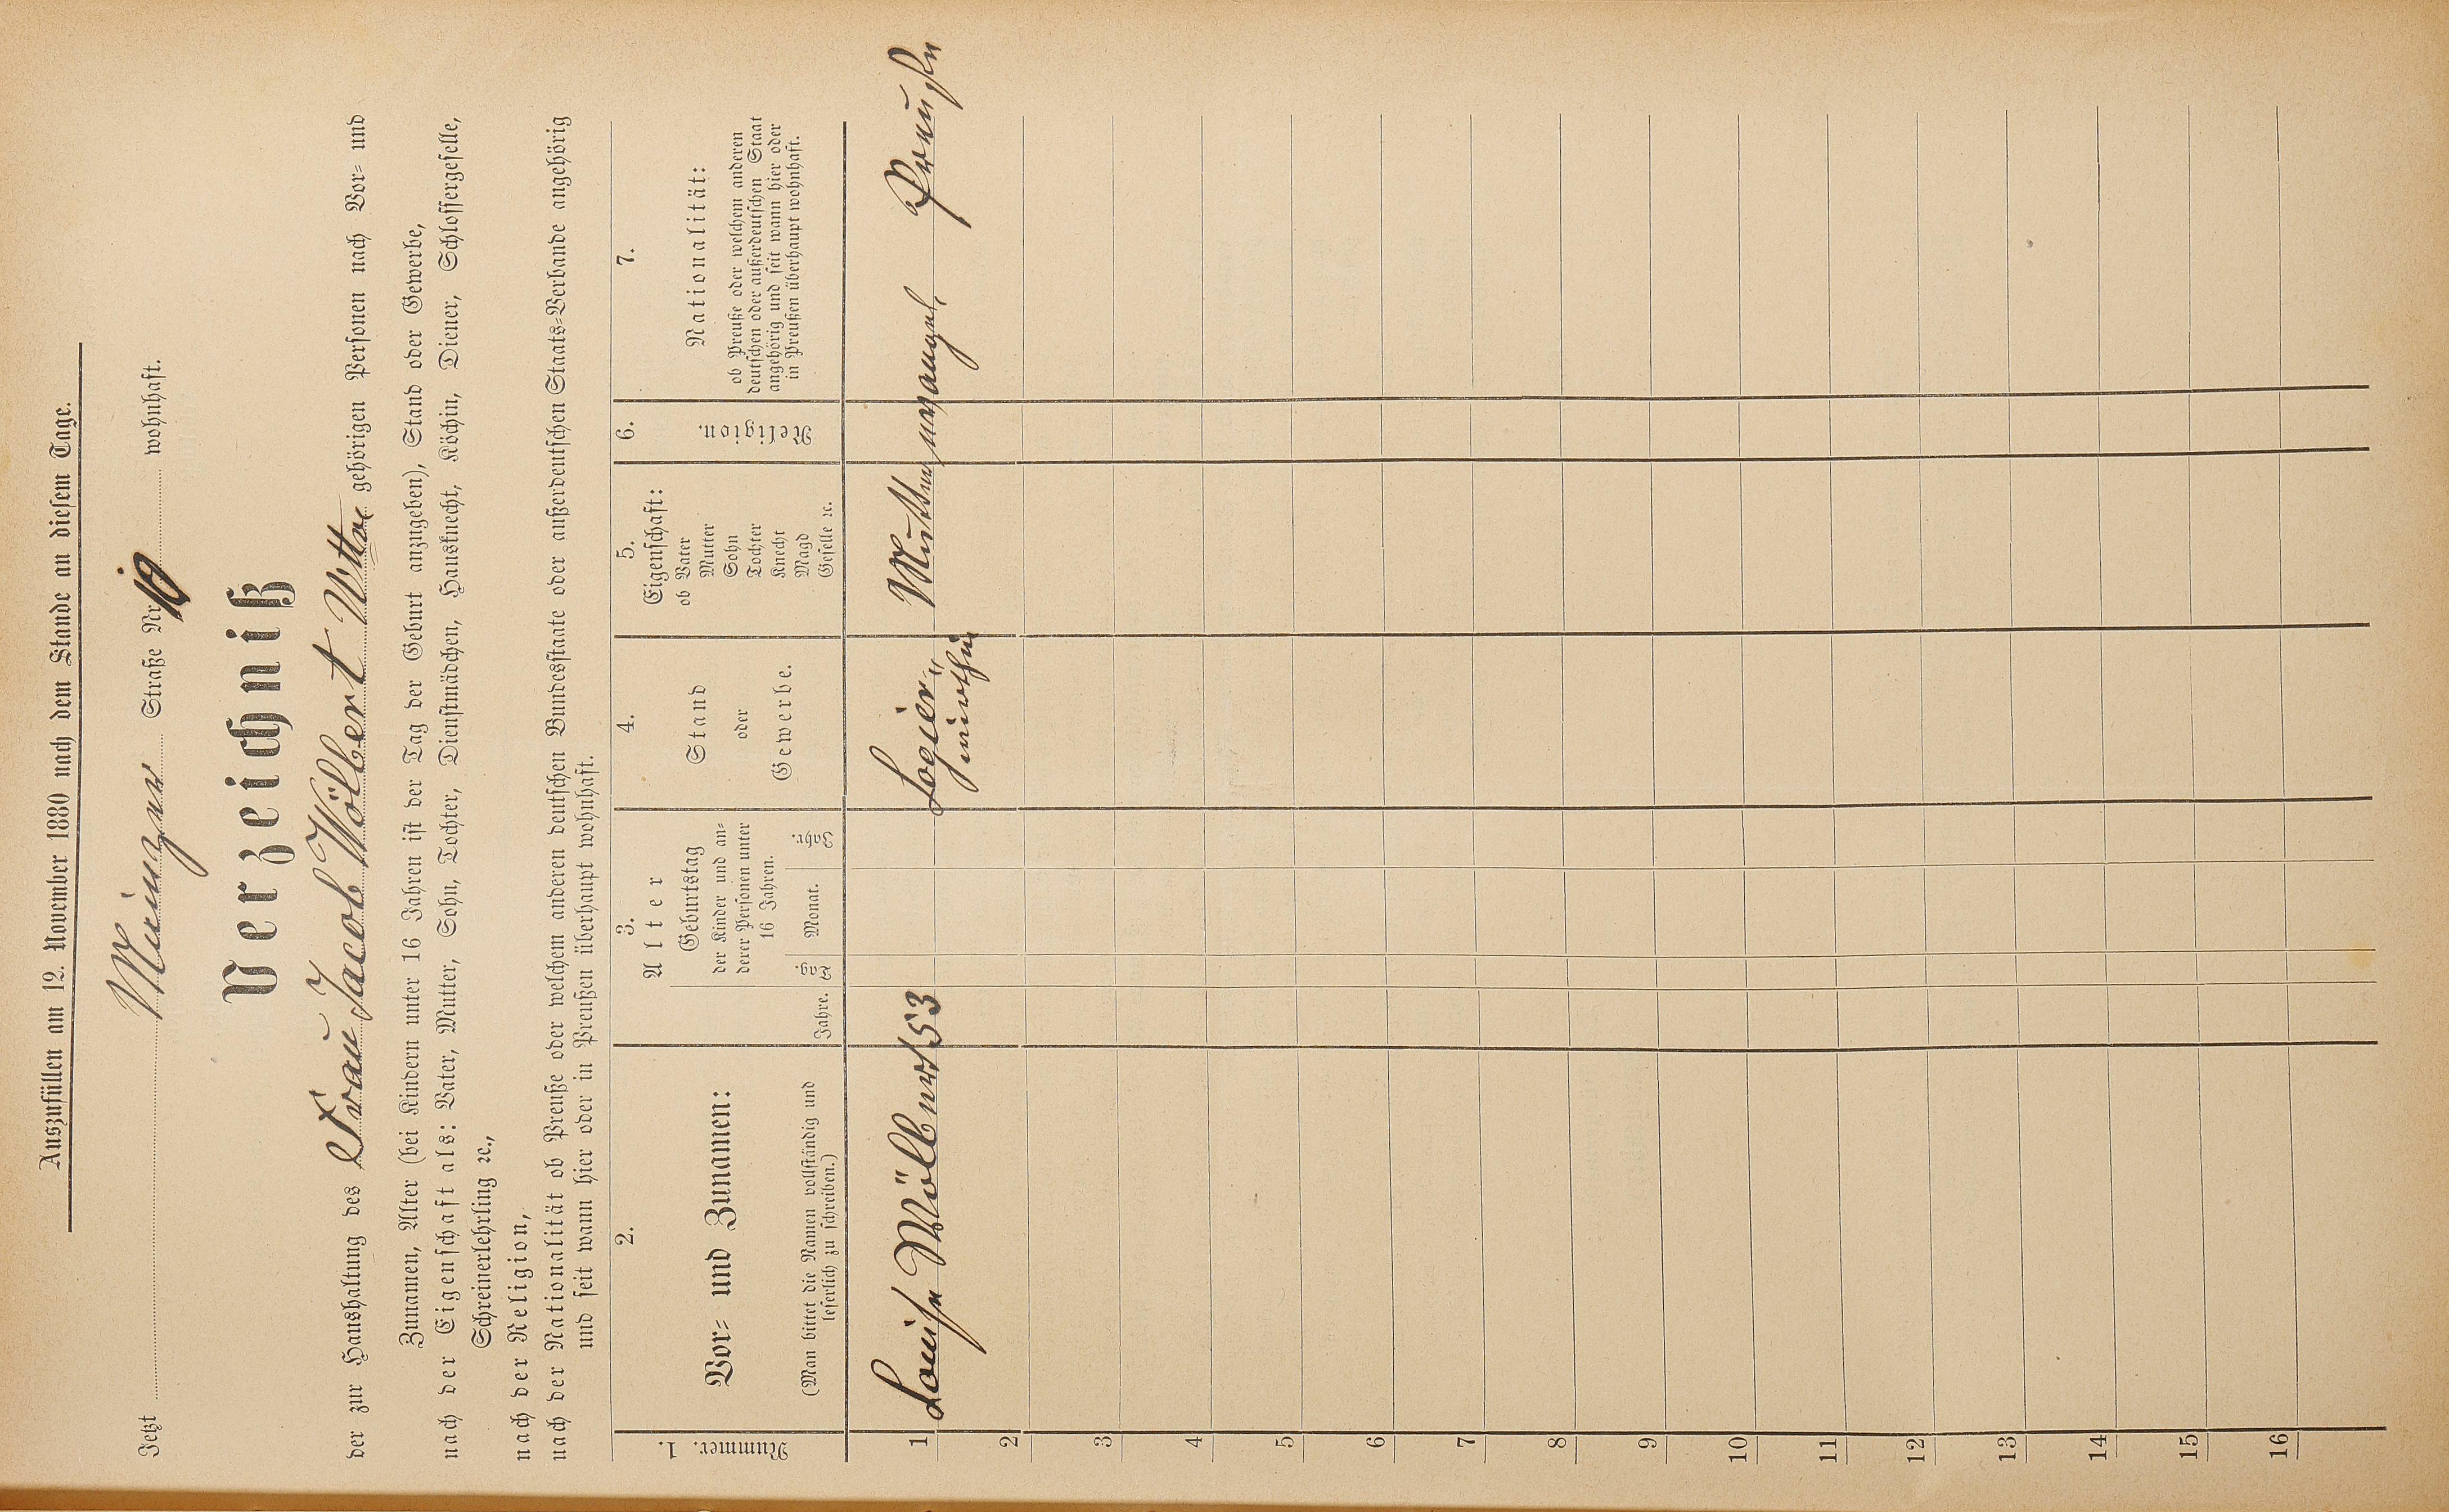 Auszufüllen am 12. November 1880 nach dem Stande an diesem Tage.
Jetzt Mainzer Straße Nr. 10 wohnhaft.
Verzeichniß
der zur Haushaltung des Frau Jacob Wölbert Wittwe gehörigen Personen nach Vor- und
Zunamen, Alter (bei Kindern unter 16 Jahren ist der Tag der Geburt anzugeben), Stand oder Gewerbe,
nach der Eigenschaft als: Vater, Mutter, Sohn, Tochter, Dienstmädchen, Hausknecht, Köchin, Diener, Schlossergeselle,
Schreinerlehrling ꝛc.,
nach der Religion,
nach der Nationalität ob Preuße oder welchem anderen deutschen Bundesstaate oder außerdeutschen Staats-Verbande angehörig
und seit wann hier oder in Preußen überhaupt wohnhaft.
Nummer. 1.
2.
Vor- und Zunamen:
(Man bittet die Namen vollständig und
leserlich zu schreiben.)
3.
Alter
Geburtstag
der Kinder und an-
derer Personen unter
16 Jahren.
Jahre. Tag Monat. Jahr.
4.
Stand
oder
Gewerbe.
5.
Eigenschaft:
ob Vater
Mutter
Sohn
Tochter
Knecht
Magd
Geselle ꝛc.
6.
Religion.
7.
Nationalität:
ob Preuße oder welchem anderen
deutschen oder außerdeutschen Staat
angehörig und seit wann hier oder
in Preußen überhaupt wohnhaft.
1 Louise Wölbert 53 Logier- Mutter evangel. Preußen
wirthin
2
3
4
5
6
7
8
9
10
11
12
13
14
15
16